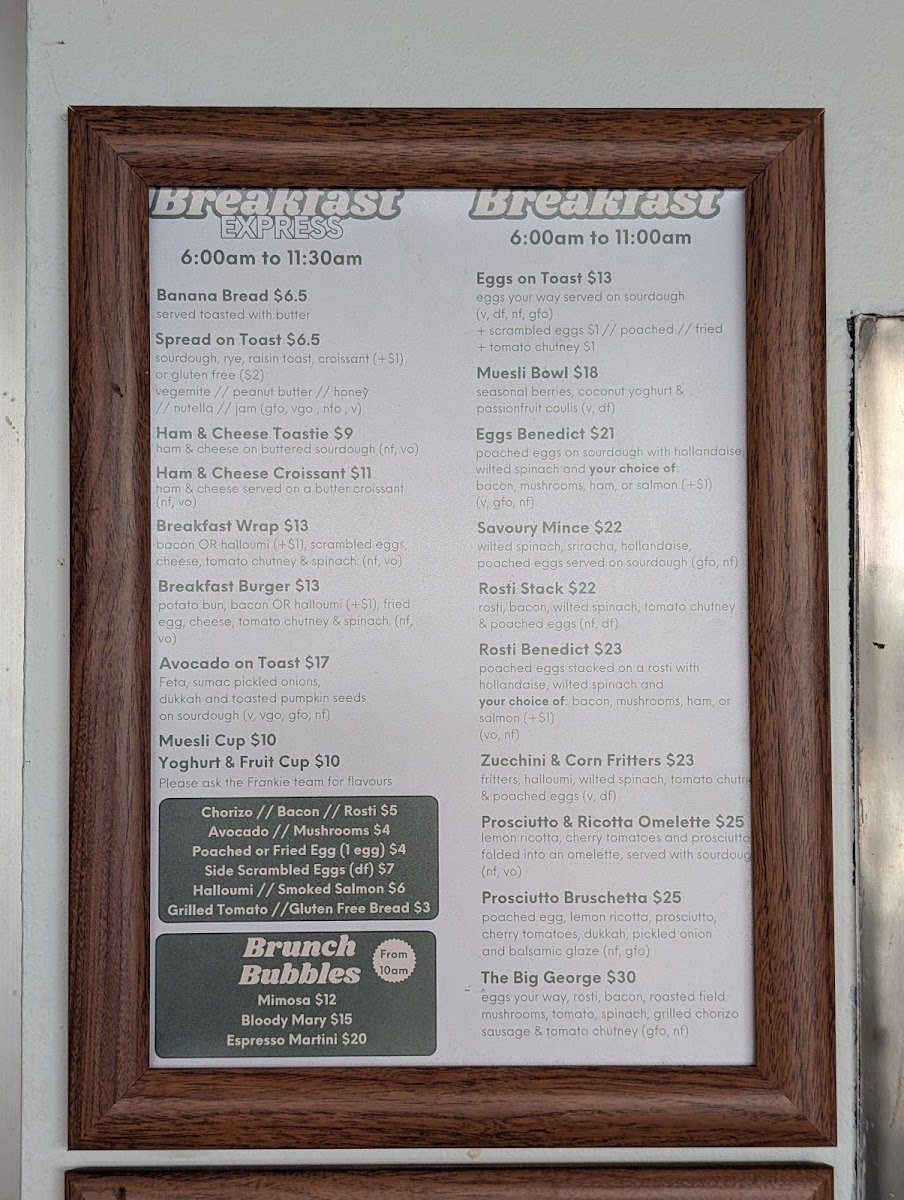 Breakfast
EXPRESS
6:00am to 11:30am
Banana Bread $6.5
served toasted with butter
Spread on Toast $6.5
sourdough, rye, raisin toast, croissant (+$1)
or gluten free ($2)
vegemite // peanut butter // honey
// nutella // jam (gfo, vgo , nfo , v)
Ham & Cheese Toastie $9
ham & cheese on buttered sourdough (nf, vo)
Ham & Cheese Croissant $11
ham & cheese served on a butter croissant
(nf, vo)
Breakfast Wrap $13
bacon OR halloumi (+$1), scrambled eggs,
cheese, tomato chutney & spinach. (nf, vo)
Breakfast Burger $13
potato bun, bacon OR halloumi (+$1), fried
egg, cheese, tomato chutney & spinach. (nf,
vo)
Avocado on Toast $17
Feta, sumac pickled onions,
dukkah and toasted pumpkin seeds
on sourdough (v, vgo, gfo, nf)
Muesli Cup $10
Yoghurt & Fruit Cup $10
Please ask the Frankie team for flavours
Chorizo // Bacon // Rosti $5
Avocado // Mushrooms $4
Poached or Fried Egg (1 egg) $4
Side Scrambled Eggs (df) $7
Halloumi // Smoked Salmon $6
Grilled Tomato //Gluten Free Bread $3
Brunch
Bubbles
From
10am
Mimosa $12
Bloody Mary $15
Espresso Martini $20
Breakfast
6:00am to 11:00am
Eggs on Toast $13
eggs your way served on sourdough
(v, df, nf, gfo)
+ scrambled eggs $1 // poached // fried
+ tomato chutney $1
Muesli Bowl $18
seasonal berries, coconut yoghurt &
passionfruit coulis (v, df)
Eggs Benedict $21
poached eggs on sourdough with hollandaise,
wilted spinach and your choice of:
bacon, mushrooms, ham, or salmon (+$1)
(v, gfo, nf)
Savoury Mince $22
wilted spinach, sriracha, hollandaise,
poached eggs served on sourdough (gfo, nf)
Rosti Stack $22
rosti, bacon, wilted spinach, tomato chutney
& poached eggs (nf, df)
Rosti Benedict $23
poached eggs stacked on a rosti with
hollandaise, wilted spinach and
your choice of: bacon, mushrooms, ham, or
salmon (+$1)
(vo, nf)
Zucchini & Corn Fritters $23
fritters, halloumi, wilted spinach, tomato chutn
& poached eggs (v, df)
Prosciutto & Ricotta Omelette $25
lemon ricotta, cherry tomatoes and prosciutto
folded into an omelette, served with sourdoug
(nf, vo)
Prosciutto Bruschetta $25
poached egg, lemon ricotta, prosciutto,
cherry tomatoes, dukkah, pickled onion
and balsamic glaze (nf, gfo)
The Big George $30
eggs your way, rosti, bacon, roasted field
mushrooms, tomato, spinach, grilled chorizo
sausage & tomato chutney (gfo, nf)